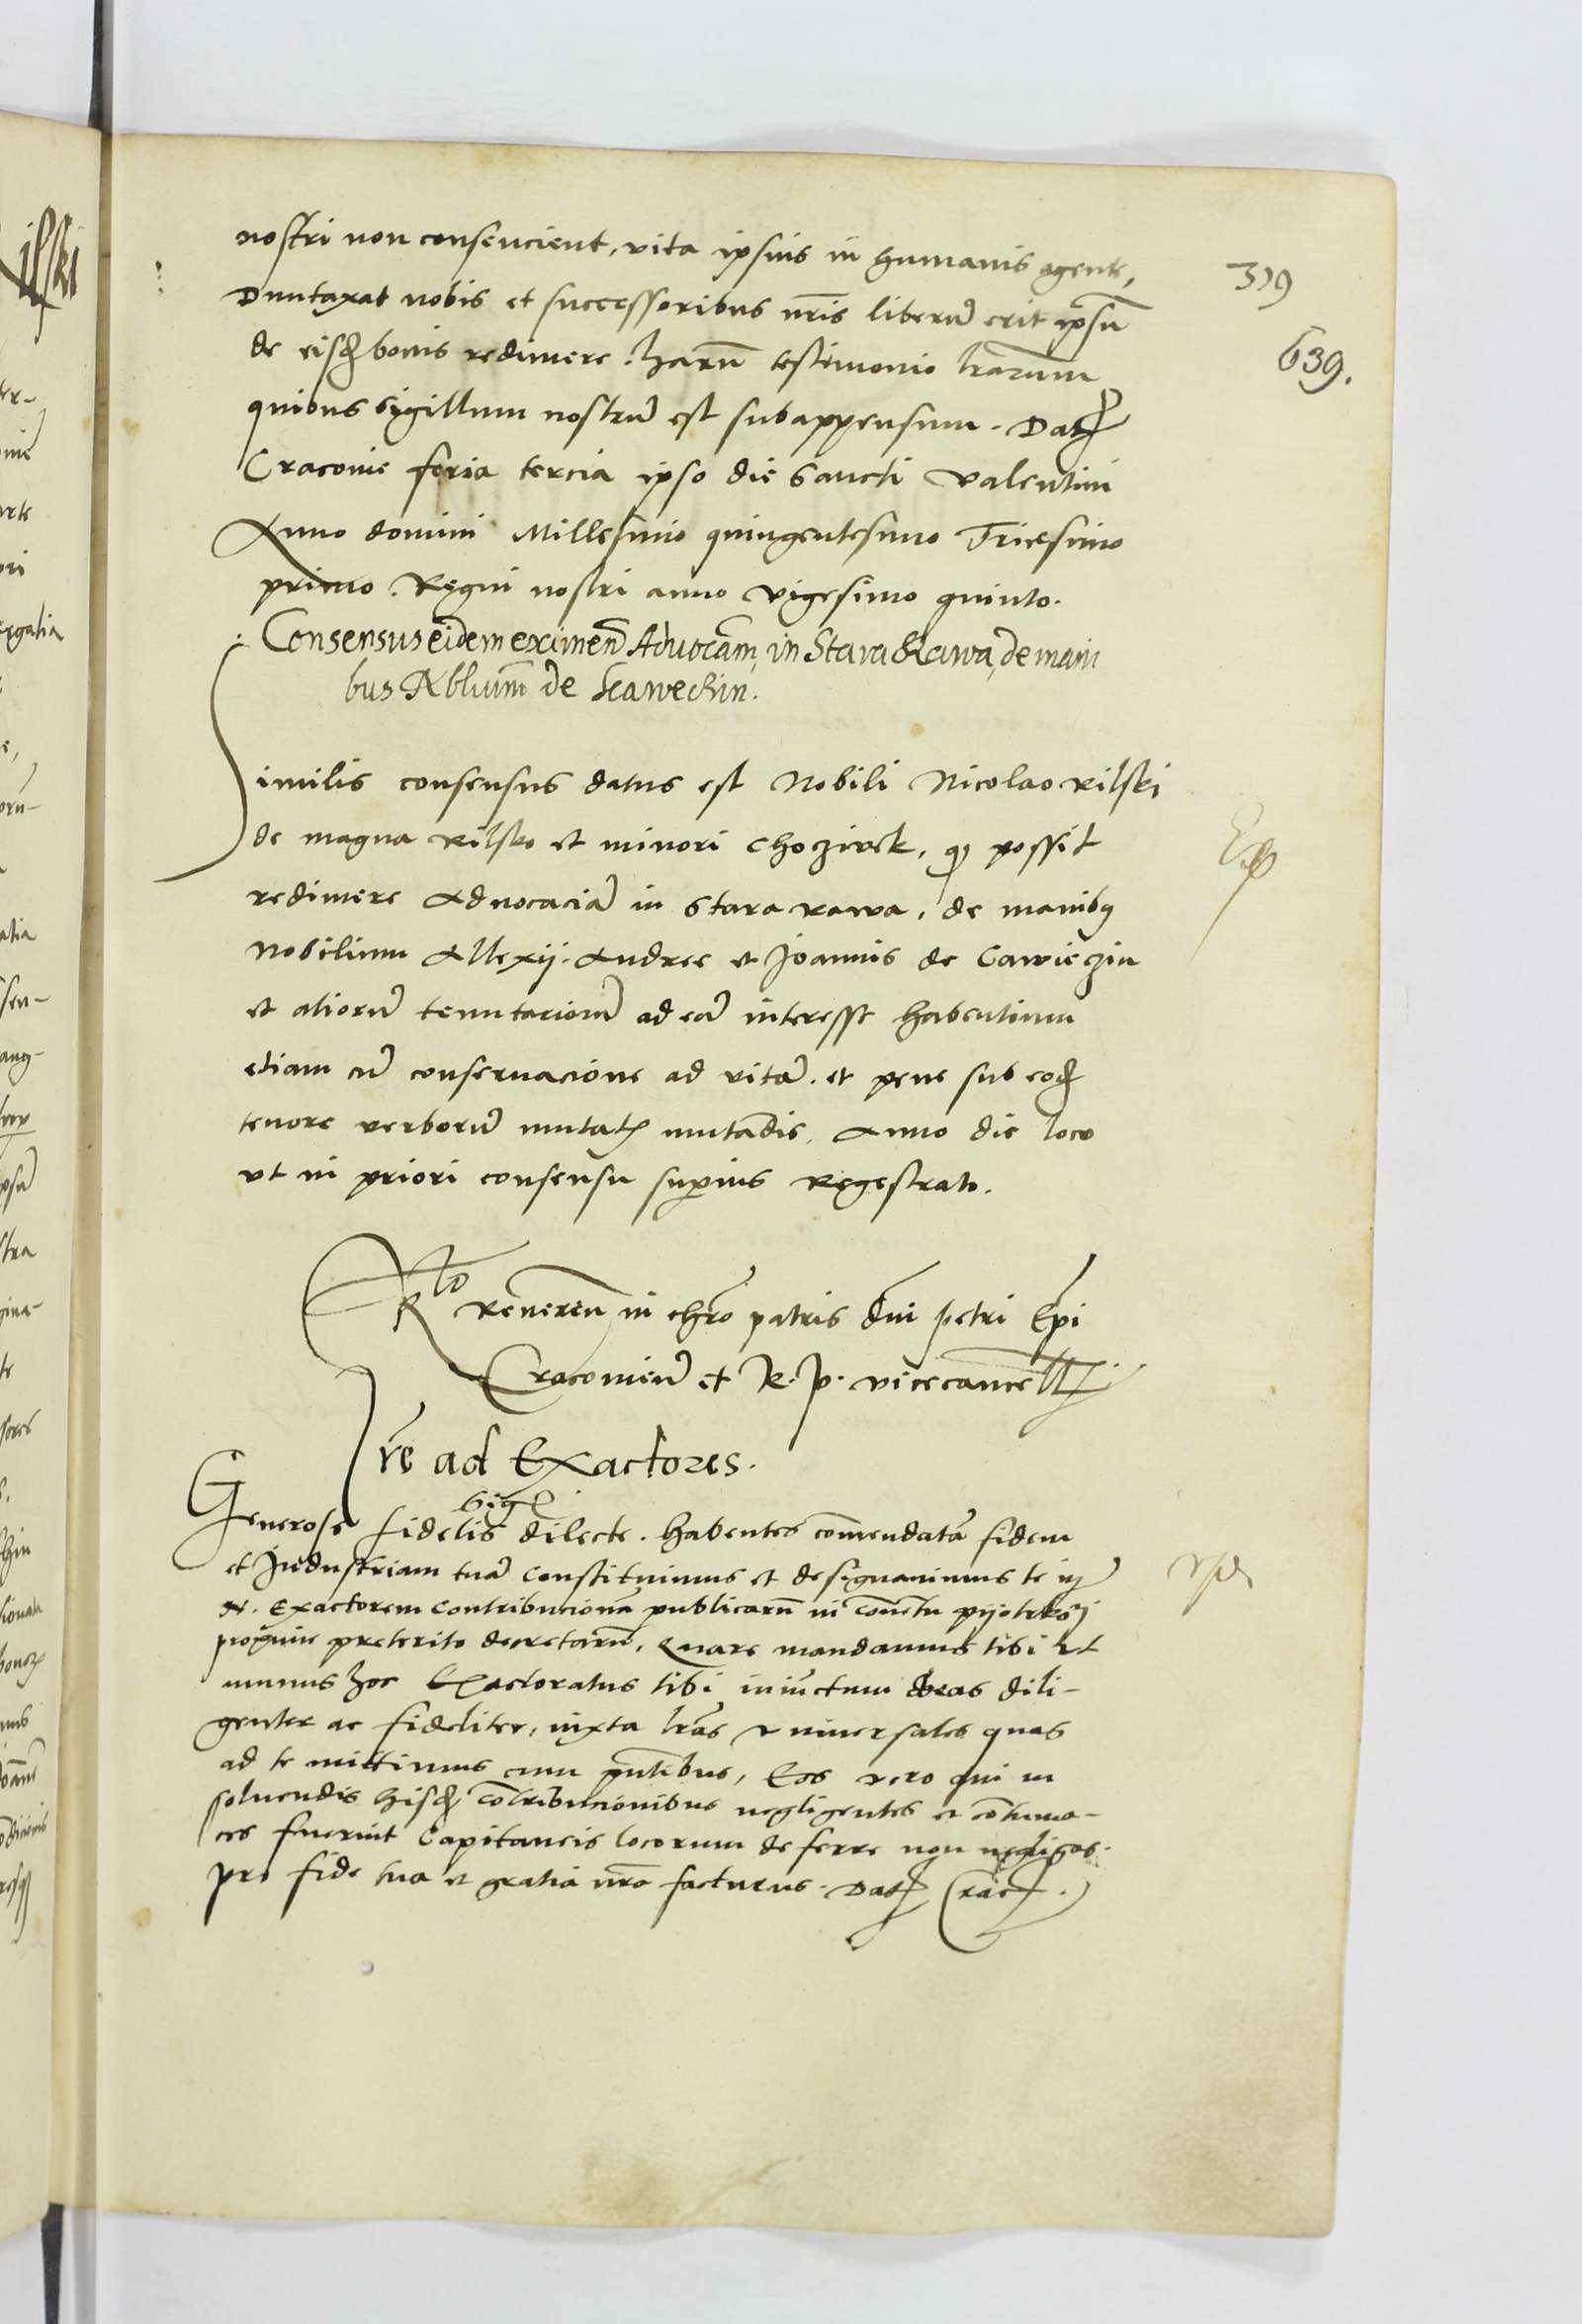 nostri non consencient, vita ipsius in humanis agente,
319
Duntaxat nobis et successoribus nr̃is liberũ erit ipsũ
639.
de eisdẽ bonis redimere. harũ testimonio lr̃arum
quibus sigillum nostrũ est subappensum. Dat
Cracovie feria tercia ipso die Sancti Valentini
Anno domini Millesimo quingentesimo Tricesimo
primo. Regni nostri anno vigesimo quinto.
Consensus eidem eximen̄ Advocãm, in Stara Rawa, de mani
bus Nblium̃ de
Similis consensus datus est Nobili Nicolao Rilski
de magna Rilsko et minori, qͦ possit
redimere advocaciã in Stara Rawa, de manibꝰ
Nobilium Allexij. Andree et Joannis de Cawieczin
et aliorũ tenutariorũ ad eã interesse habentium
etiam cũ conservacione ad vitã. et pene sub eodẽ
tenore verborũ mutatis mutãdis, Anno die loco
ut in priori consensu superius Regestrato.
Rͭͦ Reveren̄ in chr̃o patris dñi Petri Ep̃i
Cracovieñ et R. P. vicecancell
Lr̃e ad Exactores.
sig
Generose fidelis dilecte. Habentes com̃endatã fidem
et Industriam tuã constituimus et designavimus te in
N. Exactorem Contribucionũ publicarũ in convẽtu
proxime preterito decretarũ, Quare mandamus tibi ut
munus hoc Exactoratus tibi iniũctum obeas dili-
genter ac fideliter, iuxta lr̃as universales quas
ad te mittimus cum pñtibus, Eos vero qui in
solvendis hisdẽ cõtribucionibus negligentes et cõtuma-
ces fuerint Capitaneis locorum deferre non negligas.
pro fide tua et gratia nr̃a facturus. Dat Crac